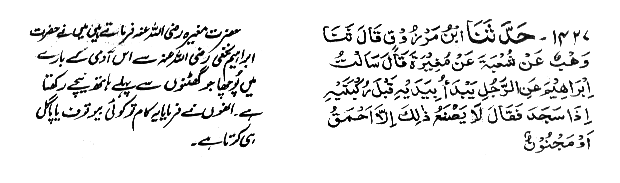 ١٤٢٧ - حَدَّثَنَا ابْنُ مَرْزُوْقٍ قَالَ ثَنَا
وَهْبٌ عَنْ شُعْبَةَ عَنْ مُغِيْرَةَ قَالَ سَالْتُ
اِبْرَاهِيْمَ عَنِ الرَّجُلِ يَبْدَأُ بِيَدَيْهِ قَبْلَ رُكْبَتَيْهِ
اِذَا سَجَدَ فَقَالَ لَا يَصْنَعُ ذٰلِكَ اِلَّا اَحْمَقُ
اَوْ مَجْنُوْنٌ
حضرت مغیرہ رضی اللہ عنہ فرماتے ہیں میں نے حضرت
ابراہیم نخعی رضی اللہ عنہ سے اس آدمی کے بارے
میں پوچھا جو گھٹنوں سے پہلے ہاتھ نیچے رکھتا
ہے۔ انھوں نے فرمایا یہ کام تو کوئی بیوقوف یا پاگل
ہی کرتا ہے۔